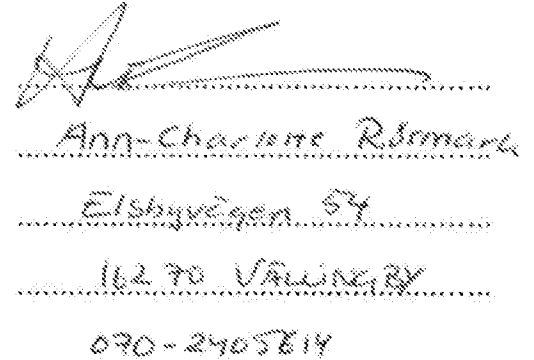 Ann-Charlotte Rörmark
Elsbyvägen 54
162 70 VÄLLINGBY
070-2405614